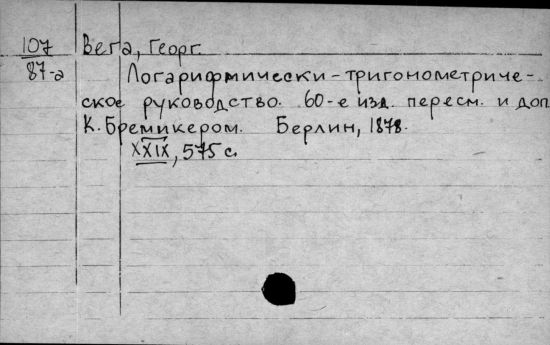 107 Вега, Георг.
87-а Логарифмически-тригонометриче-
ское руководство. 60-е изд. пересм. и доп.
К. Бремикером. Берлин, 1878.
XXIX, 575 с.